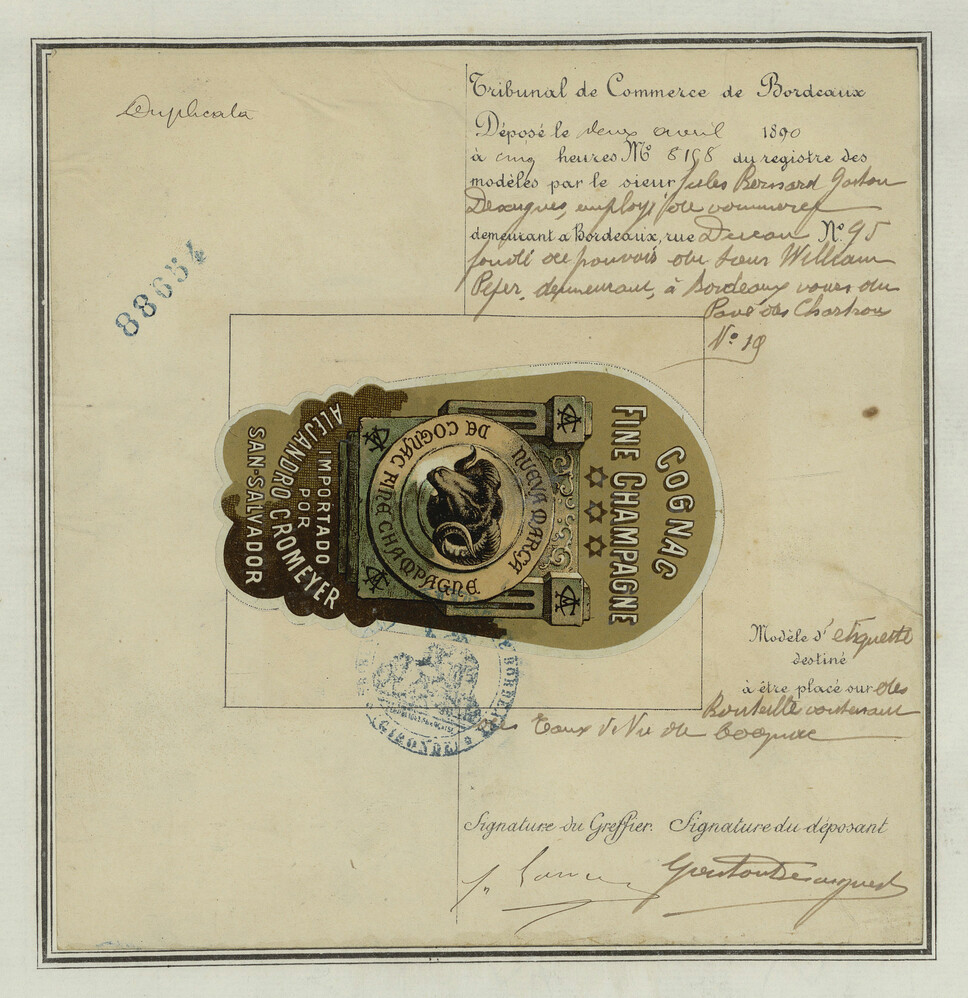 Duplicata
88654
Tribunal de Commerce de Bordeaux
Déposé le deux avril 1890
à cinq heures No 8168 du registre des
modèles par le sieur Jules Bernard Gaston
employé de commerce
demeurant à Bordeaux, rue No 95
fondé de pouvoir du Sieur William
demeurant à Bordeaux cours du
Pavé des Chartrons
No 19
COGNAC
FINE CHAMPAGNE
NUEVA MARCA
DE COGNAC FINE CHAMPAGNE
IMPORTADO
POR
ALEJANDRO CROMEYER
SAN-SALVADOR
BORDEAUX
(GIRONDE)
Modèle d'étiquette
destiné
à être placé sur des
Bouteille contenant
des Eaux de Vie de Cognac
Signature du Greffier. Signature du déposant